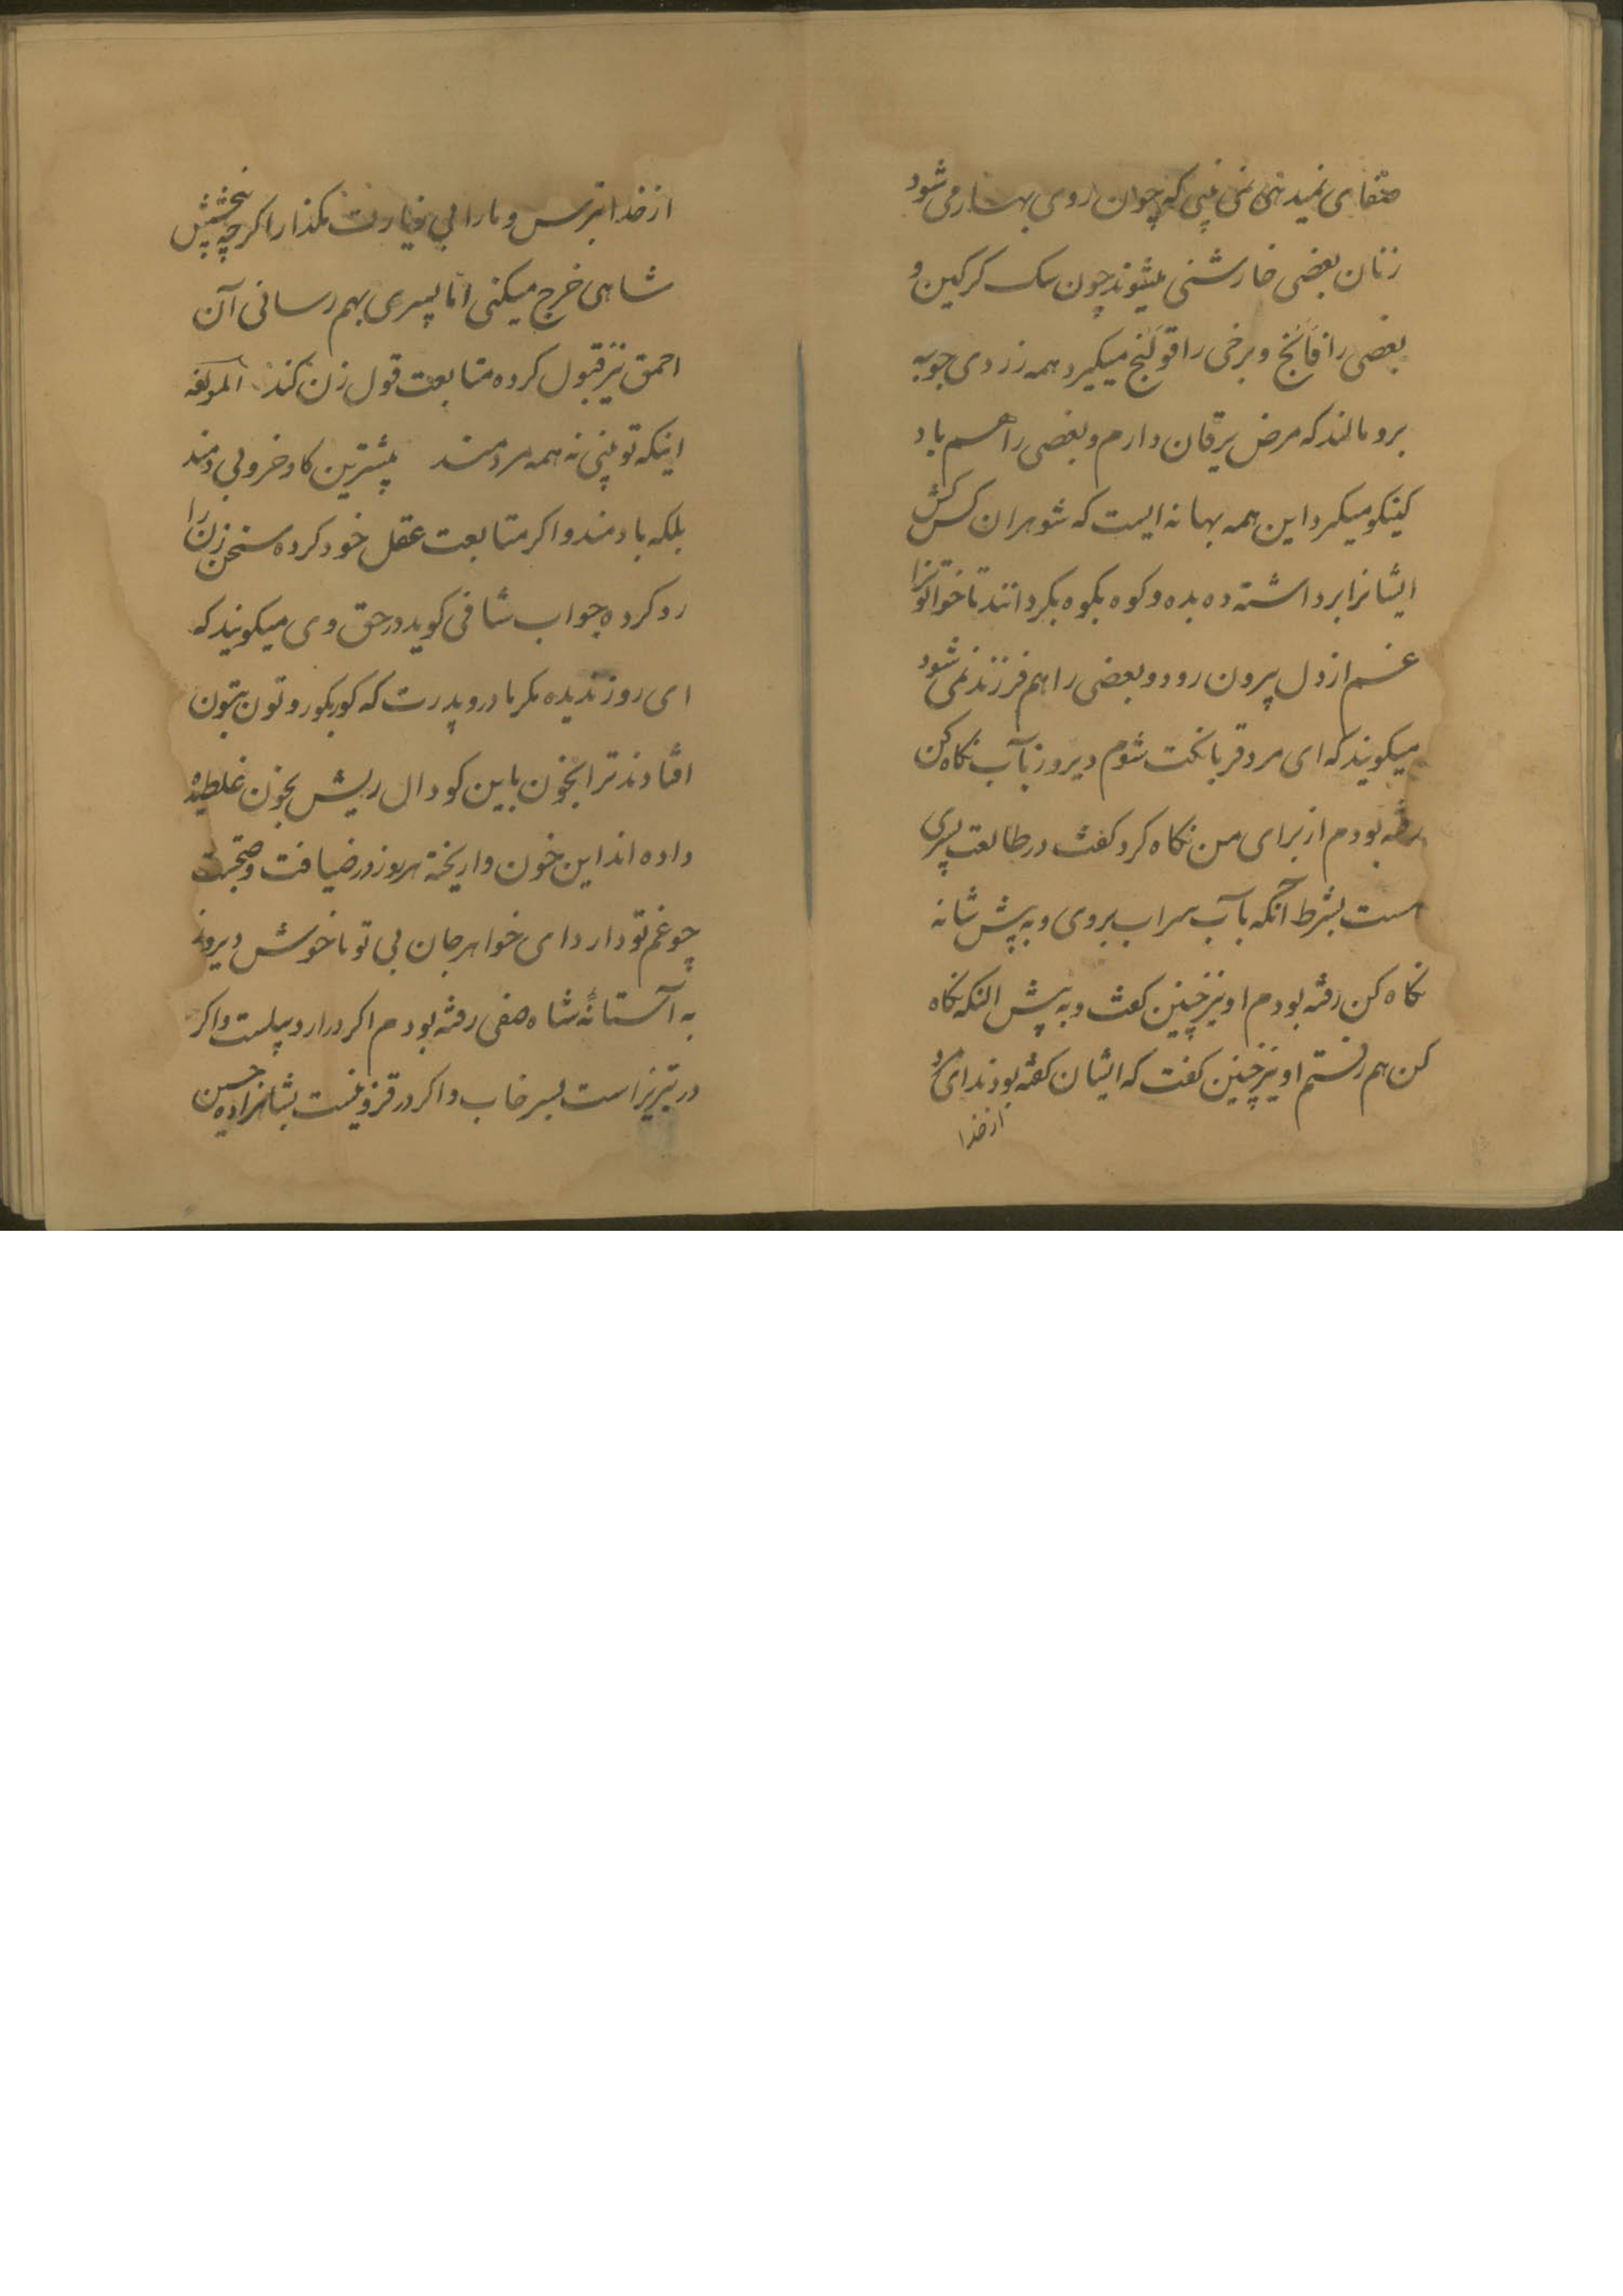 صفای نمیدهی نمی بینی که چون روی بهار می شود
زنان بعضی خارشنی میشوند چون سک کرکین و
بعضی را فالنج و برخی را قولنج میکیرد همه زردی چوبه
برو مالند که مرض یرقان دارم و بعضی را هم باد
کینکو میکیرد این همه بهانه ایست که شوهران کس کش
ایشانرا برداشته ده بده و کوه بکوه بکردانند تا خواتونرا
غم از دل بیرون رود و بعضی را هم فرزند نمی شود
میکویند که ای مرد قربانکت شوم دیروز بآب نکاه کن
رفته بودم از برای من نکاه کرد کفت در طالعت پسری
هست بشرط آنکه بآب سراب بروی و به پیش شانه
نکاه کن رفته بودم او نیز چنین کفت و به پیش النکه نکاه
کن هم رفتم او نیز چنین کفت که ایشان کفته بودند ای مرد
از خدا
از خدا بترس و ما را بی زیارت مکذار اکر چه پنجشش
شاهی خرج میکنی اما پسری بهم رسانی آن
احمق نیز قبول کرده متابعت قول زن کند لمؤلفه
اینکه تو بینی نه همه مردمند بیشترین کاو خر و بی دمند
بلکه با دمند و اکر متابعت عقل خود کرده سخن زن را
رد کرده جواب شافی کوید در حق وی میکویند که
ای روز ندیده مکر مادر و پدرت که کور بکور و تون بتون
افتادند ترا بخون باین کودال ریش بخون غلطیده
داده اند این خون واریخته هر روز در ضیافت و صحبت
چو غم تو دارد ای خواهر جان بی تو ناخوش دیروز
به آستانهٔ شاه صفی رفته بودم اکر در اردبیلست و اکر
در تبریز است بسرخاب و اکر در قزوینست بشاهزاده حسین